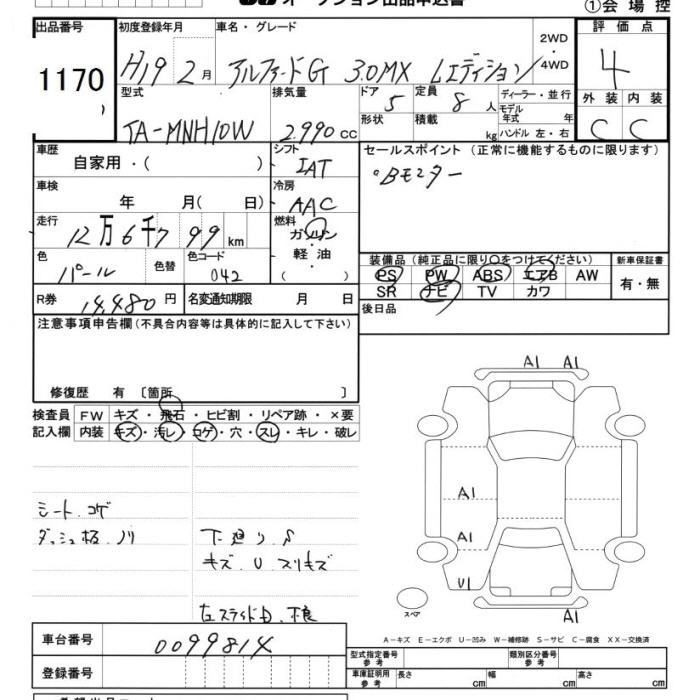 オークション出品申込書
①会場控
出品番号 初度登録年月 車名・グレード 2WD・4WD 評価点
1170 H19 2月 アルファードG 3.0MX Lエディション 4
型式 排気量 ドア 定員 ディーラー・並行 外装 内装
TA-MNH10W 2,990 cc 5 8人 モデル年式 年 C C
形状 積載 kg ハンドル 左・右
車歴 シフト セールスポイント (正常に機能するものに限ります)
自家用・( ) IAT 。Bモニター
車検 冷房
年 月( 日) AAC
走行 燃料
12万6千799km ガソリン
色 色替 色コード 軽油・
パール 042 ( )
装備品 (純正品に限り○をつけてください) 新車保証書
PS PW ABS エアB AW 有・無
SR ナビ TV カワ
R券 14,480円 名変通知期限 月 日
後日品
注意事項申告欄(不具合内容等は具体的に記入して下さい)
修復歴 有 〔箇所 〕
検査員 FW キズ・飛石・ヒビ割・リペア跡・×要
記入欄 内装 キズ・汚レ・コゲ・穴・スレ・キレ・破レ
A1 A1
A1
A1
U1
A1
シート.コゲ
ダッシュ板.ノリ
下廻り.S
キズ.U.スリキズ
スペア
A-キズ E-エクボ U-凹み W-補修跡 S-サビ C-腐食 XX-交換済
車台番号 0099814
登録番号
型式指定番号 参考 類別区分番号 参考
車庫証明用 参考 長さ cm 幅 cm 高さ cm